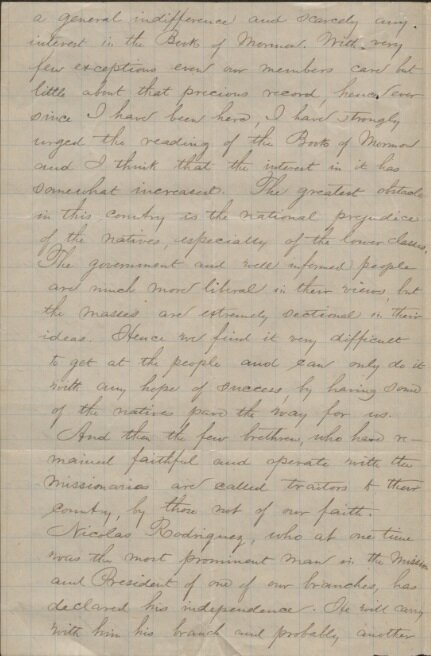 a general indifference and scarcely any
interest in the Book of Mormon. With very
few exceptions even our members care but
little about that precious record, hence ever
since I have been here, I have strongly
urged the reading of the Book of Mormon
and I think that the interest in it has
somewhat increased. The greatest obstacle
in this country is the national prejudice
of the natives, especially of the lower classes.
The government and well informed people
are much more liberal in their views, but
the masses are extremely sectional in their
ideas. Hence we find it very difficult
to get at the people and can only do it
with any hope of success, by having some
of the natives pave the way for us.
And then the few brethren, who have re-
mained faithful and operate with the
missionaries are called traitors to their
country, by those not of our faith.
Nicolas Rodriguez, who at one time
was the most prominent man in the Mission
and President of one of our branches, has
declared his independence. He will carry
with him his branch and probably another